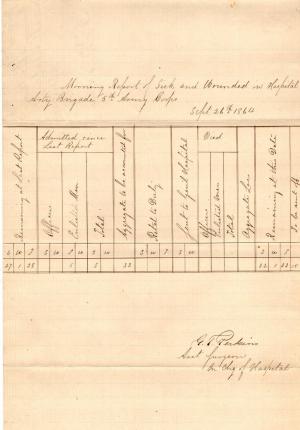 Morning Report of Sick and Wounded in Hospital
Arty Brigade 5th Army Corps
Sept 26th 1864
Remaining at Last Report
Admitted since Last Report
Officers
Enlisted Men
Total
Aggregate to be accounted for
Retd to Duty
Sent to Genl Hospital
Died
Officers
Enlisted Men
Total
Aggregate Loss
Remaining at this Date
S W T S W S W S W S W T
27 1 28 5 5 33 32 1 33
G. T. Perkins
Asst Surgeon
In Chg of Hospital